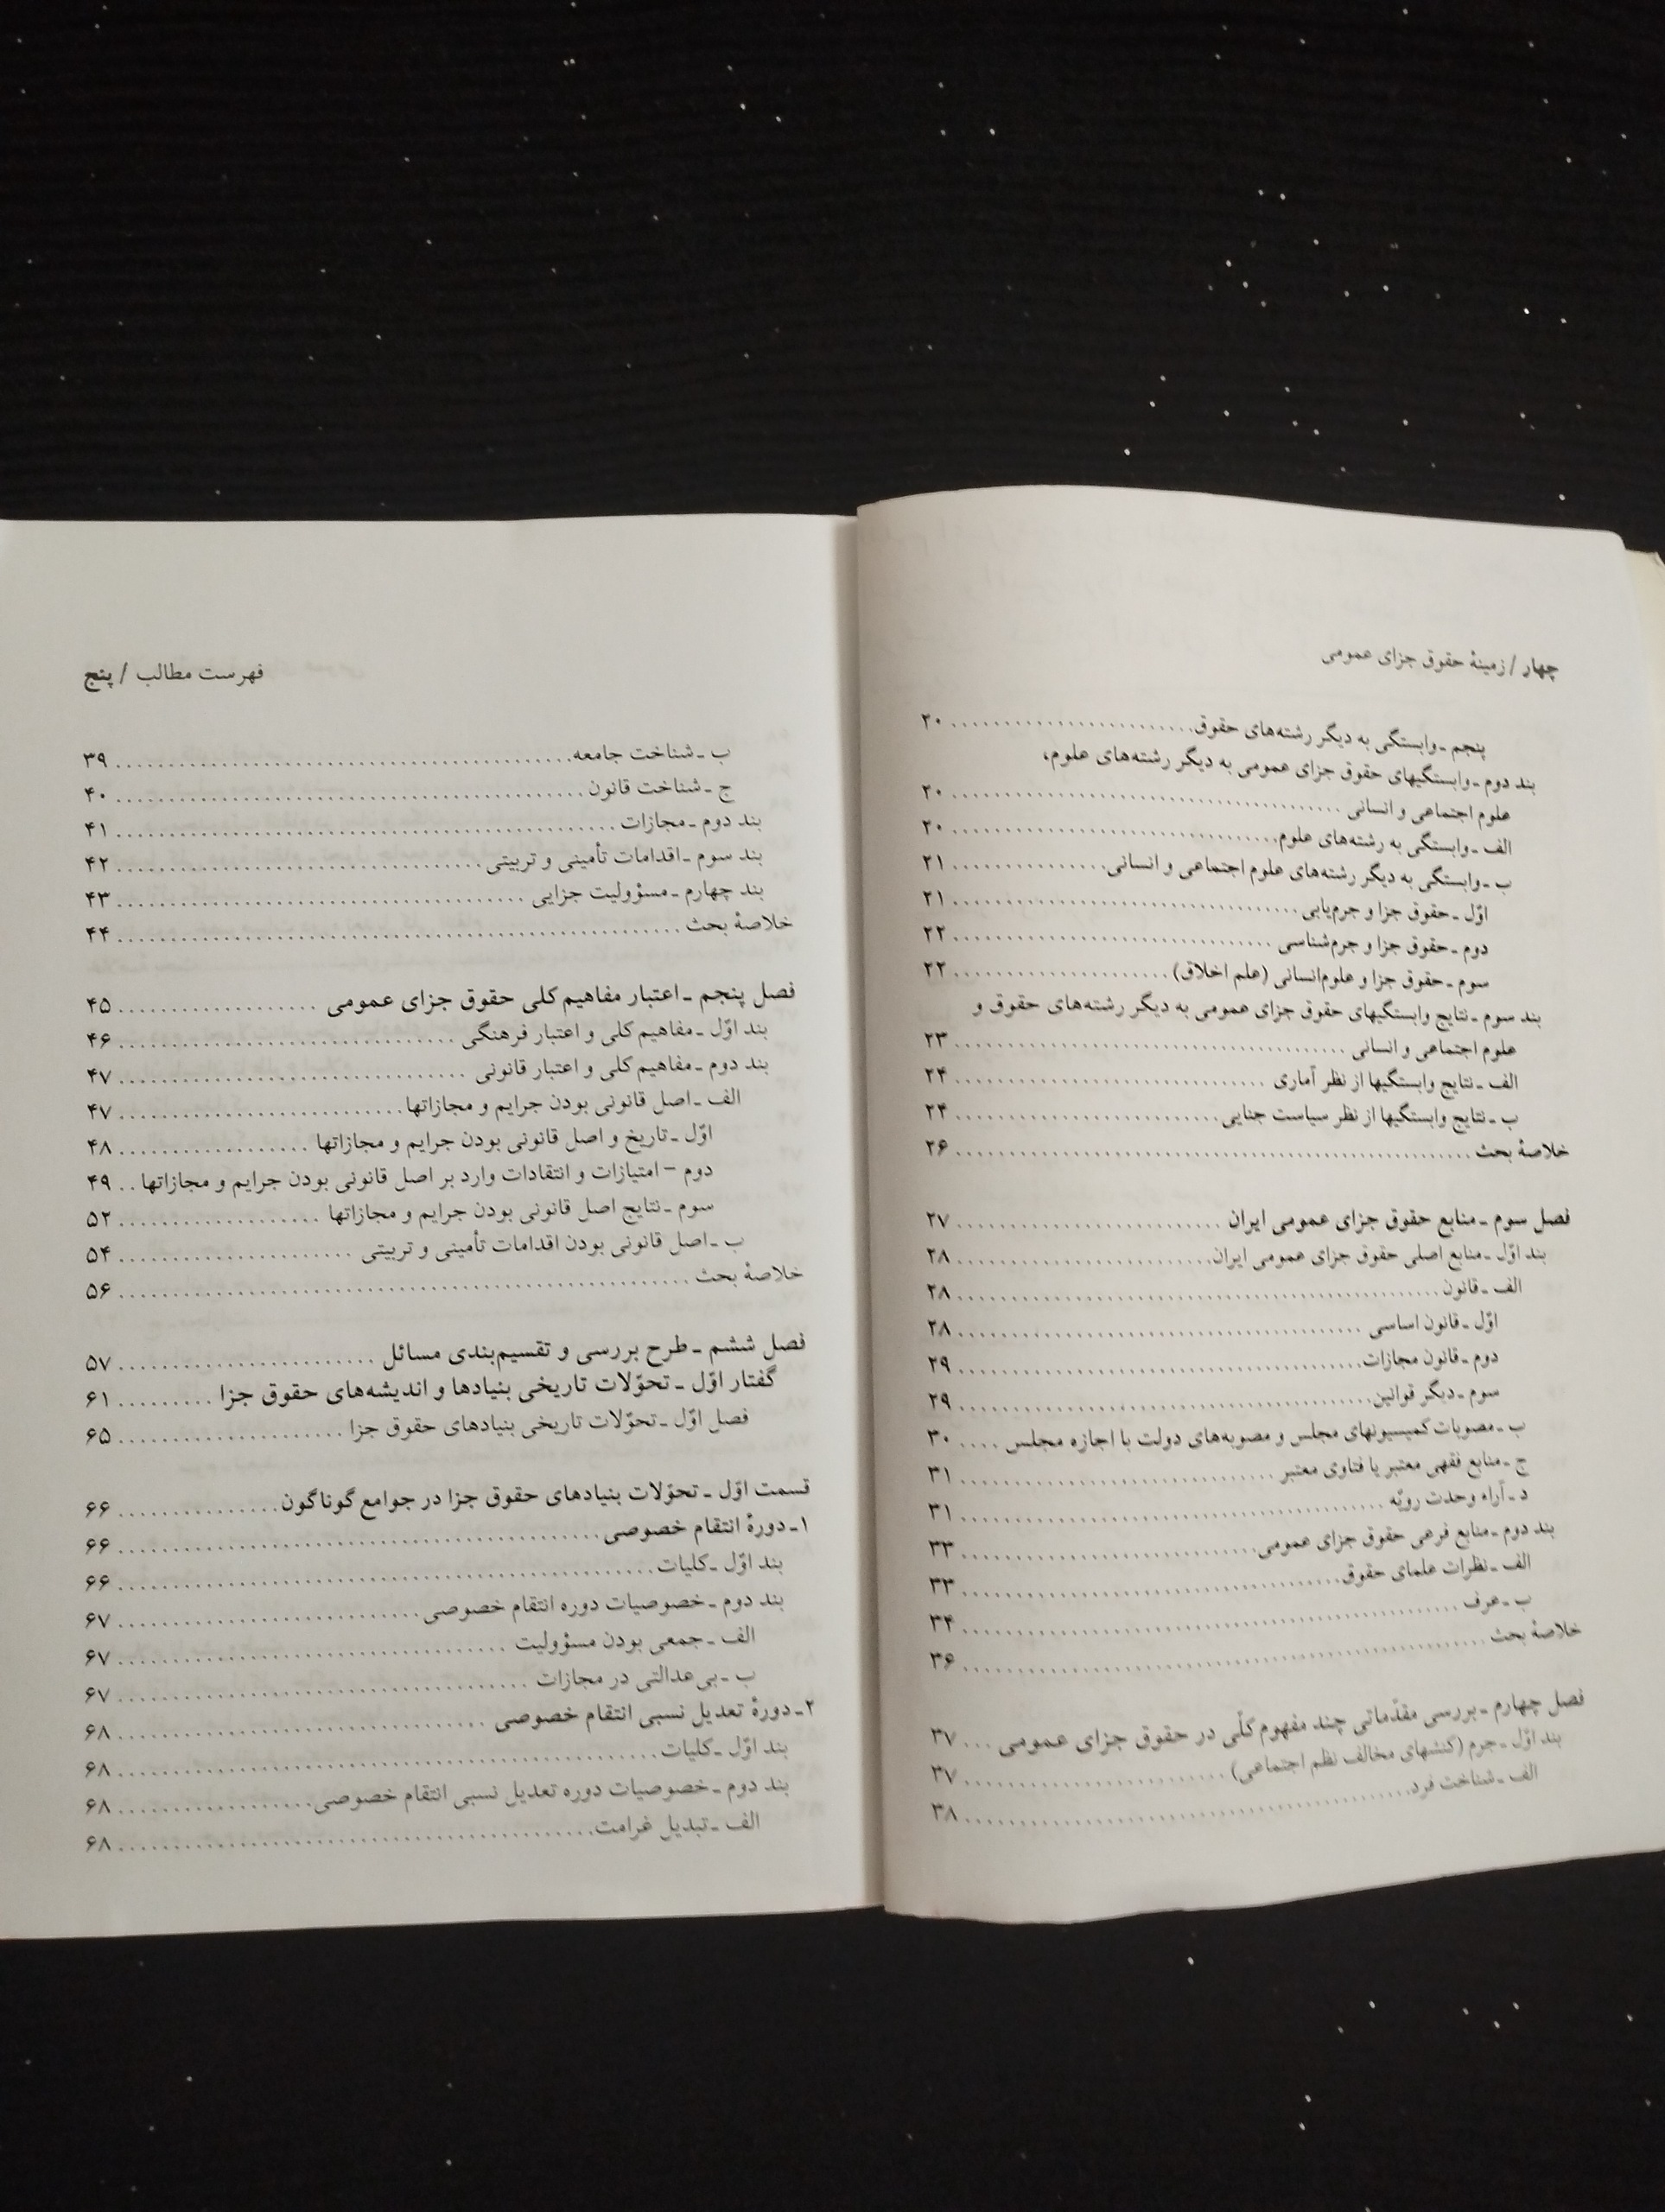 چهار / زمینهٔ حقوق جزای عمومی
پنجم ـ وابستگی به دیگر رشته‌های حقوق ........................ ۲۰
بند دوم ـ وابستگیهای حقوق جزای عمومی به دیگر رشته‌های علوم،
علوم اجتماعی و انسانی ........................ ۲۰
الف ـ وابستگی به رشته‌های علوم ........................ ۲۰
ب ـ وابستگی به دیگر رشته‌های علوم اجتماعی و انسانی ................ ۲۱
اوّل ـ حقوق جزا و جرم‌یابی ........................ ۲۱
دوم ـ حقوق جزا و جرم‌شناسی ........................ ۲۲
سوم ـ حقوق جزا و علوم‌انسانی (علم اخلاق) ........................ ۲۲
بند سوم ـ نتایج وابستگیهای حقوق جزای عمومی به دیگر رشته‌های حقوق و
علوم اجتماعی و انسانی ........................ ۲۳
الف ـ نتایج وابستگیها از نظر آماری ........................ ۲۴
ب ـ نتایج وابستگیها از نظر سیاست جنایی ........................ ۲۴
خلاصهٔ بحث ........................ ۲۶
فصل سوم ـ منابع حقوق جزای عمومی ایران ........................ ۲۷
بند اوّل ـ منابع اصلی حقوق جزای عمومی ایران ........................ ۲۸
الف ـ قانون ........................ ۲۸
اوّل ـ قانون اساسی ........................ ۲۸
دوم ـ قانون مجازات ........................ ۲۹
سوم ـ دیگر قوانین ........................ ۲۹
ب ـ مصوبات کمیسیونهای مجلس و مصوبه‌های دولت با اجازه مجلس .... ۳۰
ج ـ منابع فقهی معتبر یا فتاوی معتبر ........................ ۳۱
د ـ آراء وحدت رویّه ........................ ۳۱
بند دوم ـ منابع فرعی حقوق جزای عمومی ........................ ۳۳
الف ـ نظرات علمای حقوق ........................ ۳۳
ب ـ عرف ........................ ۳۴
خلاصهٔ بحث ........................ ۳۶
فصل چهارم ـ بررسی مقدّماتی چند مفهوم کلّی در حقوق جزای عمومی ... ۳۷
بند اوّل ـ جرم (کنشهای مخالف نظم اجتماعی) ........................ ۳۷
الف ـ شناخت فرد ........................ ۳۸
فهرست مطالب / پنج
ب ـ شناخت جامعه ........................ ۳۹
ج ـ شناخت قانون ........................ ۴۰
بند دوم ـ مجازات ........................ ۴۱
بند سوم ـ اقدامات تأمینی و تربیتی ........................ ۴۲
بند چهارم ـ مسؤولیت جزایی ........................ ۴۳
خلاصهٔ بحث ........................ ۴۴
فصل پنجم ـ اعتبار مفاهیم کلی حقوق جزای عمومی .................. ۴۵
بند اوّل ـ مفاهیم کلی و اعتبار فرهنگی ........................ ۴۶
بند دوم ـ مفاهیم کلی و اعتبار قانونی ........................ ۴۷
الف ـ اصل قانونی بودن جرایم و مجازاتها ........................ ۴۷
اوّل ـ تاریخ و اصل قانونی بودن جرایم و مجازاتها .................. ۴۸
دوم – امتیازات و انتقادات وارد بر اصل قانونی بودن جرایم و مجازاتها .. ۴۹
سوم ـ نتایج اصل قانونی بودن جرایم و مجازاتها .................. ۵۲
ب ـ اصل قانونی بودن اقدامات تأمینی و تربیتی .................... ۵۴
خلاصهٔ بحث ........................ ۵۶
فصل ششم ـ طرح بررسی و تقسیم‌بندی مسائل ...................... ۵۷
گفتار اوّل ـ تحوّلات تاریخی بنیادها و اندیشه‌های حقوق جزا ......... ۶۱
فصل اوّل ـ تحوّلات تاریخی بنیادهای حقوق جزا .................... ۶۵
قسمت اوّل ـ تحوّلات بنیادهای حقوق جزا در جوامع گوناگون .............. ۶۶
۱ـ دورهٔ انتقام خصوصی ........................ ۶۶
بند اوّل ـ کلیات ........................ ۶۶
بند دوم ـ خصوصیات دوره انتقام خصوصی ........................ ۶۷
الف ـ جمعی بودن مسؤولیت ........................ ۶۷
ب ـ بی‌عدالتی در مجازات ........................ ۶۷
۲ـ دورهٔ تعدیل نسبی انتقام خصوصی ........................ ۶۸
بند اوّل ـ کلیات ........................ ۶۸
بند دوم ـ خصوصیات دوره تعدیل نسبی انتقام خصوصی .................. ۶۸
الف ـ تبدیل غرامت ........................ ۶۸